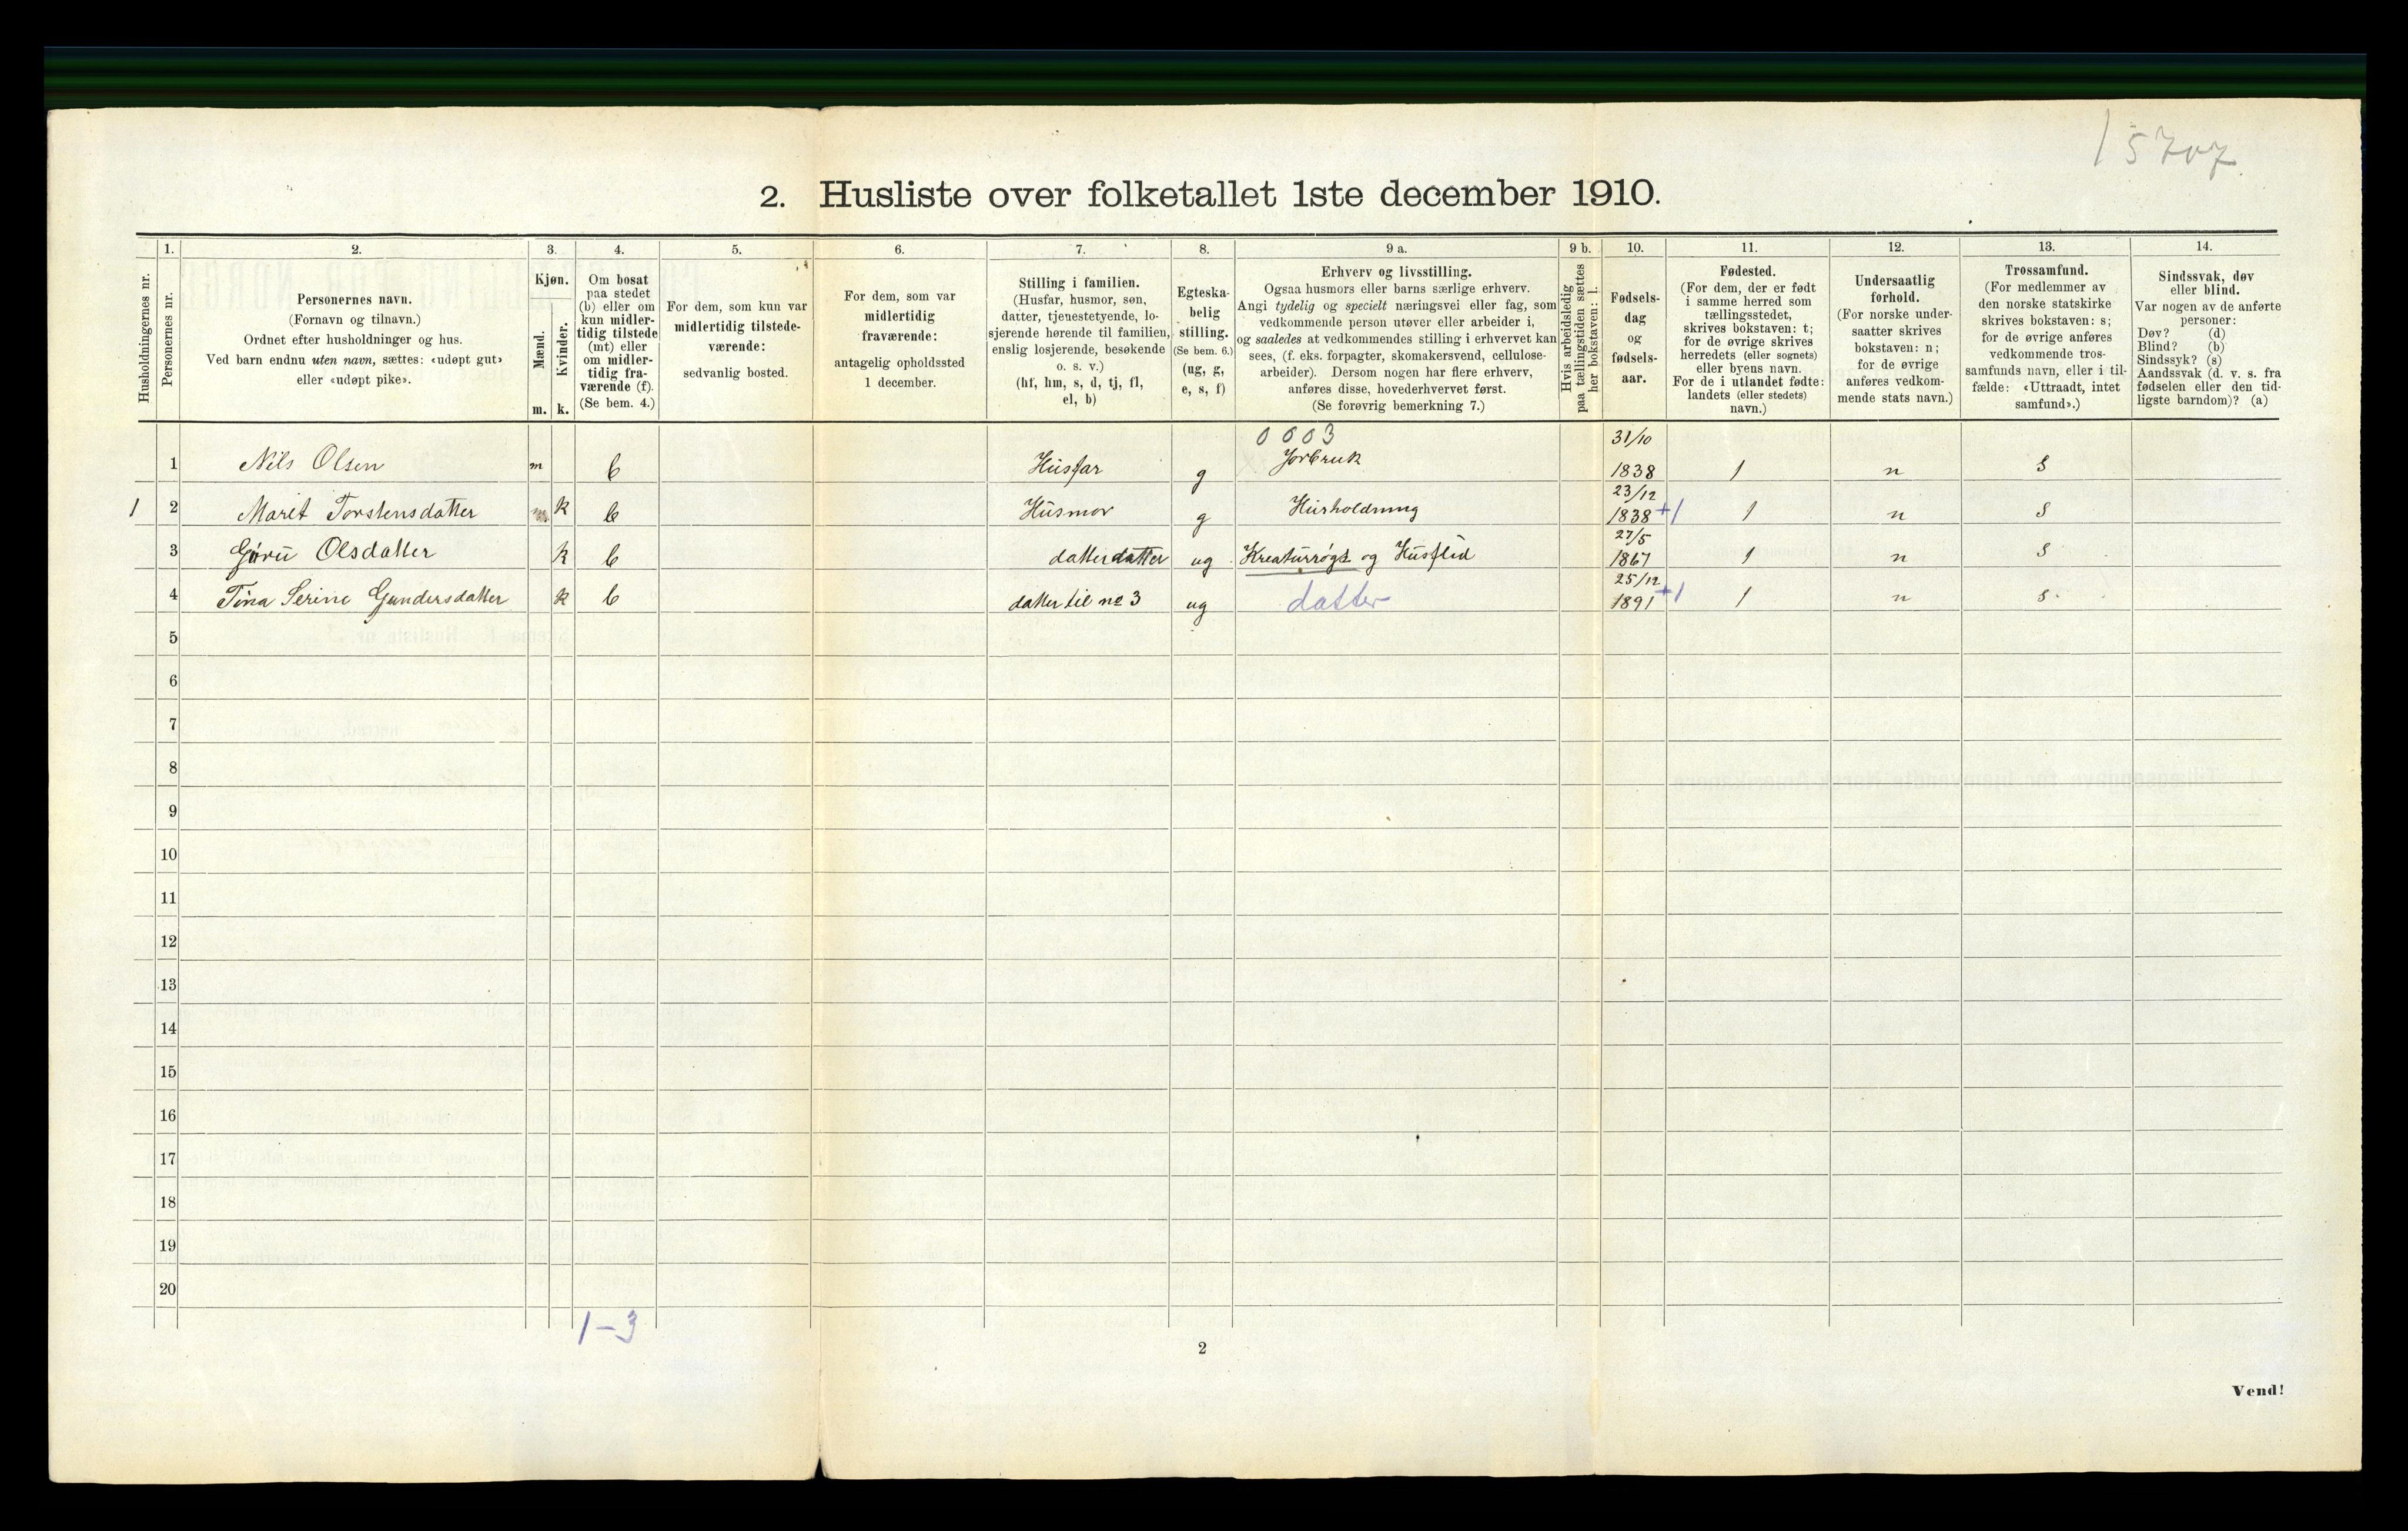 15707
2. Husliste over folketallet 1ste december 1910.
1. 2. 3. 4. 5. 6. 7. 8. 9 a. 9 b. 10. 11. 12. 13. 14.
Husholdningernes nr.
Personernes nr.
Personernes navn.
(Fornavn og tilnavn.)
Ordnet efter husholdninger og hus.
Ved barn endnu uten navn, sættes: «udøpt gut»
eller «udøpt pike».
Kjøn.
Mænd.
Kvinder.
m. k.
Om bosat
paa stedet
(b) eller om
kun midler-
tidig tilstede
(mt) eller
om midler-
tidig fra-
værende (f).
(Se bem. 4.)
For dem, som kun var
midlertidig tilstede-
værende:
sedvanlig bosted.
For dem, som var
midlertidig
fraværende:
antagelig opholdssted
1 december.
Stilling i familien.
(Husfar, husmor, søn,
datter, tjenestetyende, lo-
sjerende hørende til familien,
enslig losjerende, besøkende
o. s. v.)
(hf, hm, s, d, tj, fl,
el, b)
Egteska-
belig
stilling.
(Se bem. 6.)
(ug, g,
e, s, f)
Erhverv og livsstilling.
Ogsaa husmors eller barns særlige erhverv.
Angi tydelig og specielt næringsvei eller fag, som
vedkommende person utøver eller arbeider i,
og saaledes at vedkommendes stilling i erhvervet kan
sees, (f. eks. forpagter, skomakersvend, cellulose-
arbeider). Dersom nogen har flere erhverv,
anføres disse, hovederhvervet først.
(Se forøvrig bemerkning 7.)
Hvis arbeidsledig
paa tællingstiden sættes
her bokstaven: l.
Fødsels-
dag
og
fødsels-
aar.
Fødested.
(For dem, der er født
i samme herred som
tællingsstedet,
skrives bokstaven: t;
for de øvrige skrives
herredets (eller sognets)
eller byens navn.
For de i utlandet fødte:
landets (eller stedets)
navn.)
Undersaatlig
forhold.
(For norske under-
saatter skrives
bokstaven: n;
for de øvrige
anføres vedkom-
mende stats navn.)
Trossamfund.
(For medlemmer av
den norske statskirke
skrives bokstaven: s;
for de øvrige anføres
vedkommende tros-
samfunds navn, eller i til-
fælde: «Uttraadt, intet
samfund».)
Sindssvak, døv
eller blind.
Var nogen av de anførte
personer:
Døv? (d)
Blind? (b)
Sindssyk? (s)
Aandssvak (d. v. s. fra
fødselen eller den tid-
ligste barndom)? (a)
0003 31/10
1 Nils Olsen m b Husfar g Jorbruk 1838 1 n s
23/12
1 2 Marit Torstensdatter k b Husmor g Husholdning 1838 +1 1 n s
27/5
3 Guru Olsdatter k b datterdatter ug Kreaturrøgt og Husflid 1867 1 n s
25/12
4 Tina Serine Gundersdatter k b datter til no 3 ug datter 1891 +1 1 n s
5
6
7
8
9
10
11
12
13
14
15
16
17
18
19
20
1-3
2
Vend!